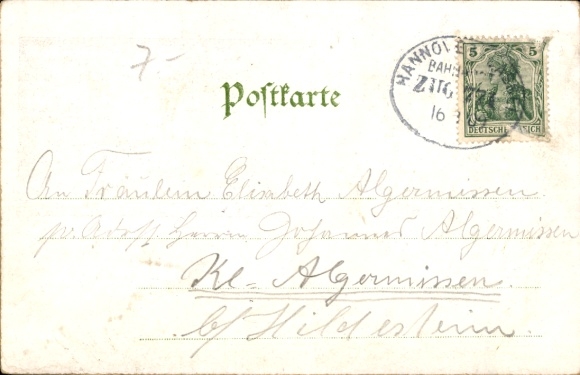 7-
HANNOVE
BAHN
ZUG
16
5 5
DEUTSCHES REICH
Postkarte
An Fräulein Elisabeth Algermissen.
p. Adress Herrn Johannes Algermissen
Kl- Algermissen.
b/ Hildesheim.